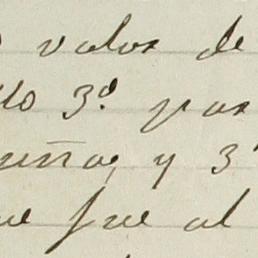 valor de
llo 3º por
y 3
fue al